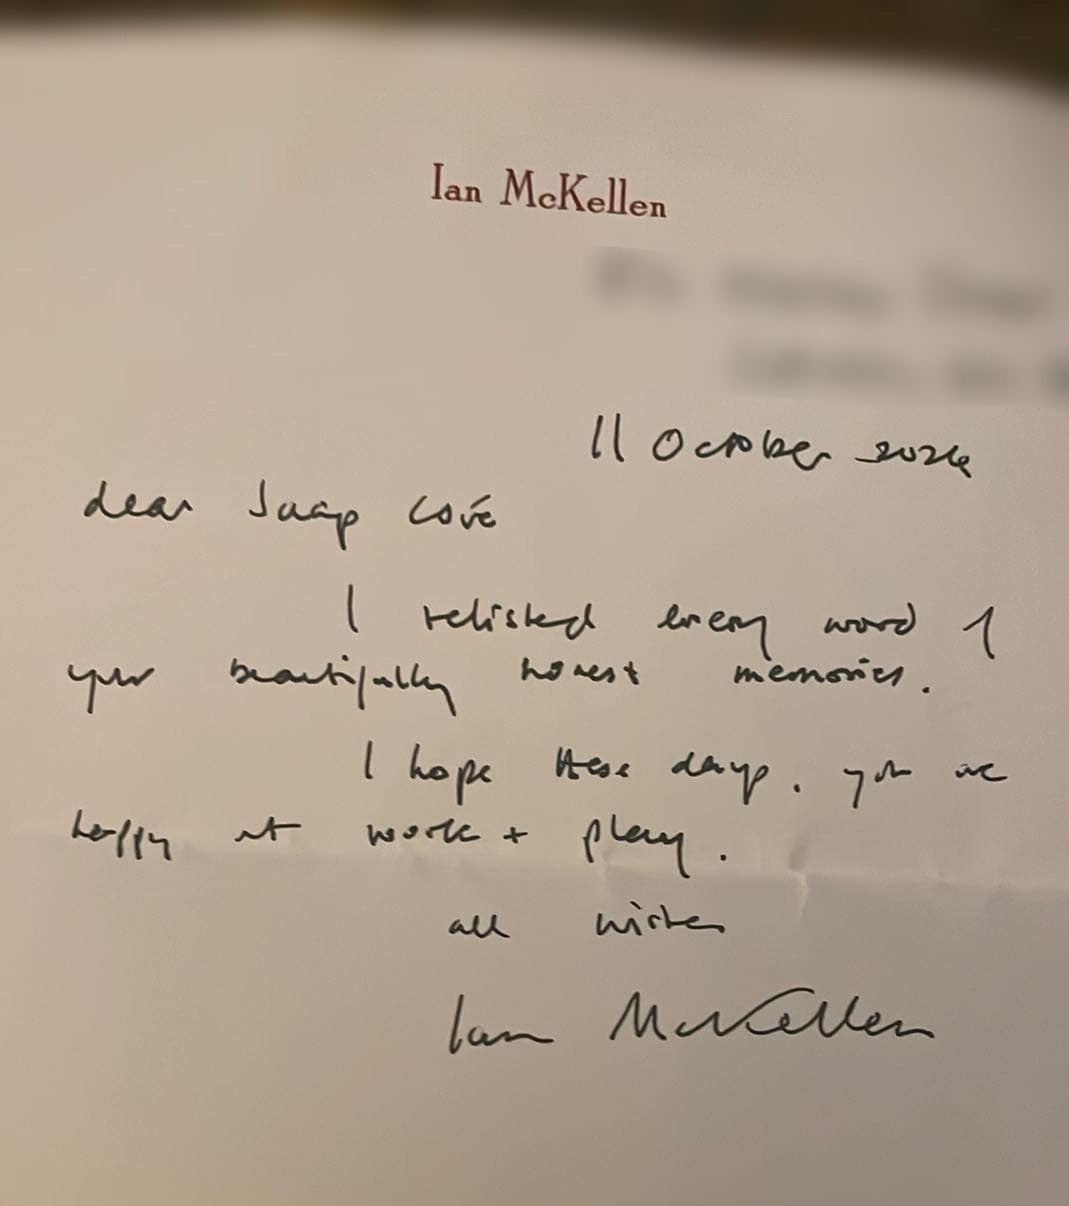 Ian McKellen
11 October 2024
dear Jaap Cové
I relished every word of
your beautifully honest memories.
I hope these days. you are
happy at work + play.
all wishes
Ian McKellen